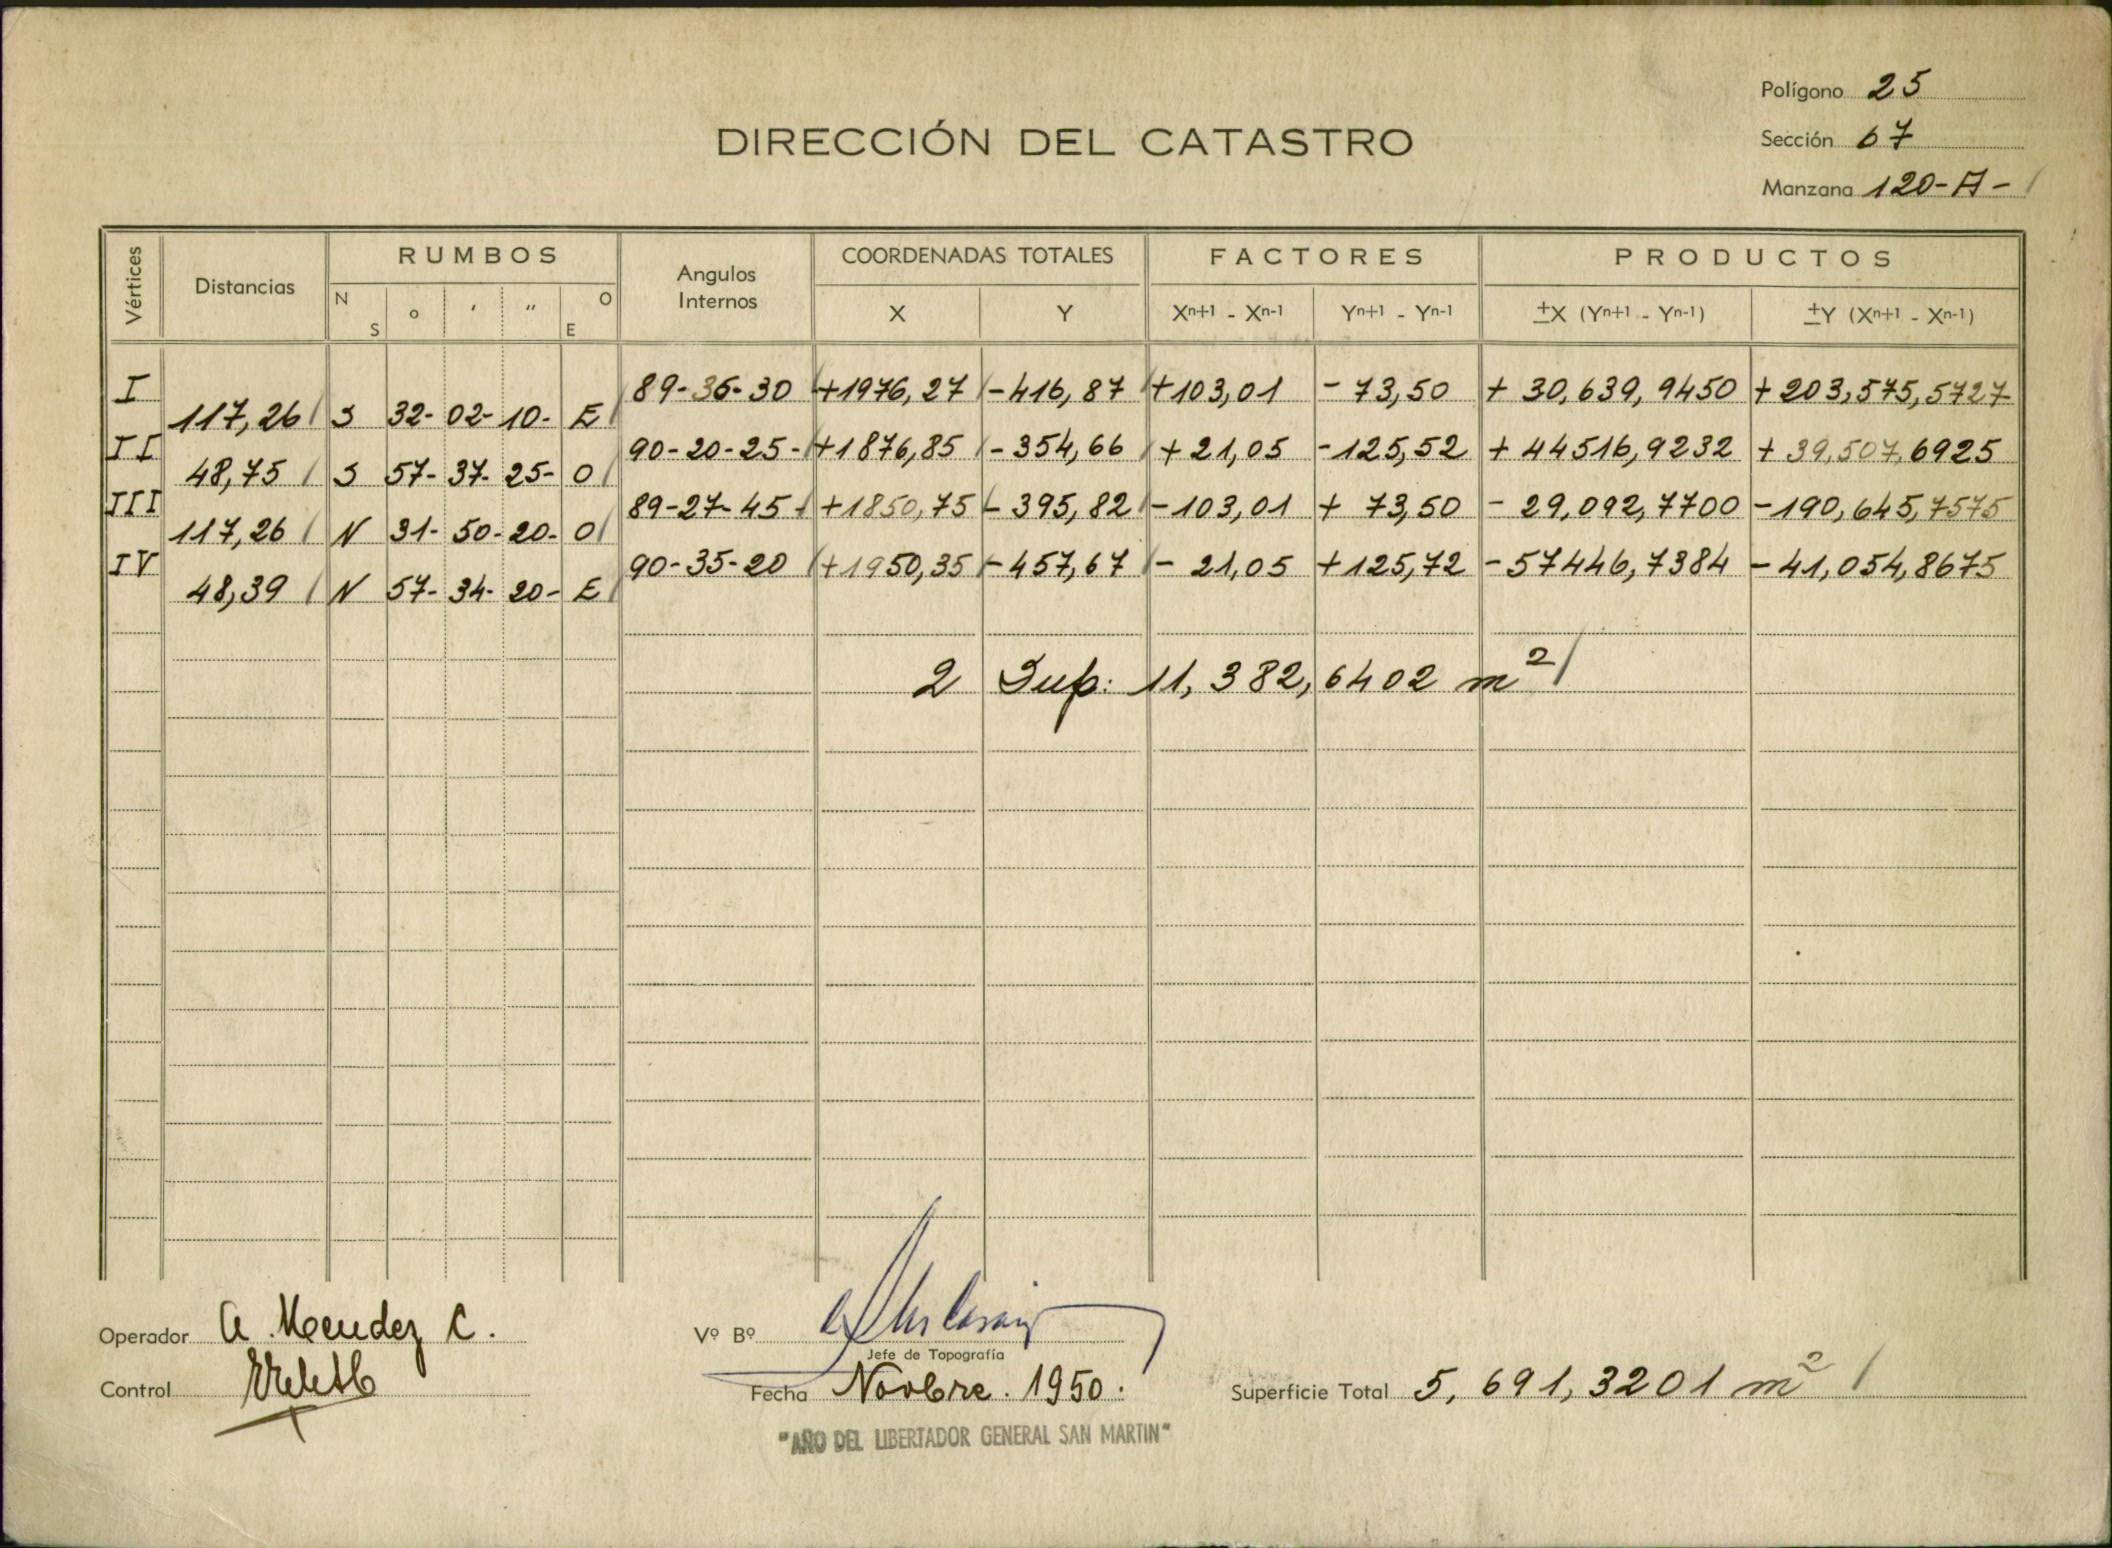 Polígono 25
DIRECCIÓN DEL CATASTRO
Sección 67
Manzana 120-A-
Vértices Distancias RUMBOS Angulos Internos COORDENADAS TOTALES FACTORES PRODUCTOS
N S o ' " O E X Y Xn+1 - Xn-1 Yn+1 - Yn-1 ±X (Yn+1 - Yn-1) ±Y (Xn+1 - Xn-1)
I 89-36-30 +1976,27 -416,87 +103,01 - 73,50 + 30,639,9450 + 203,575,5727
117,26 S 32- 02- 10- E
II 90-20-25- +1876,85 - 354,66 + 21,05 -125,52 + 44516,9232 + 39,507,6925
48,75 S 57- 37- 25- O
III 89-27-45 +1850,75 - 395,82 -103,01 + 73,50 - 29,092,7700 -190,645,7575
117,26 N 31- 50- 20- O
IV 90-35-20 +1950,35 -457,67 - 21,05 +125,72 -57446,7384 - 41,054,8675
48,39 N 57- 34- 20- E
2 Sup: 11,382,6402 m²
Operador A. Mendez C.
Vº Bº
Jefe de Topografía
Control
Fecha Novbre. 1950.
Superficie Total 5,691,3201 m²
"AÑO DEL LIBERTADOR GENERAL SAN MARTIN"